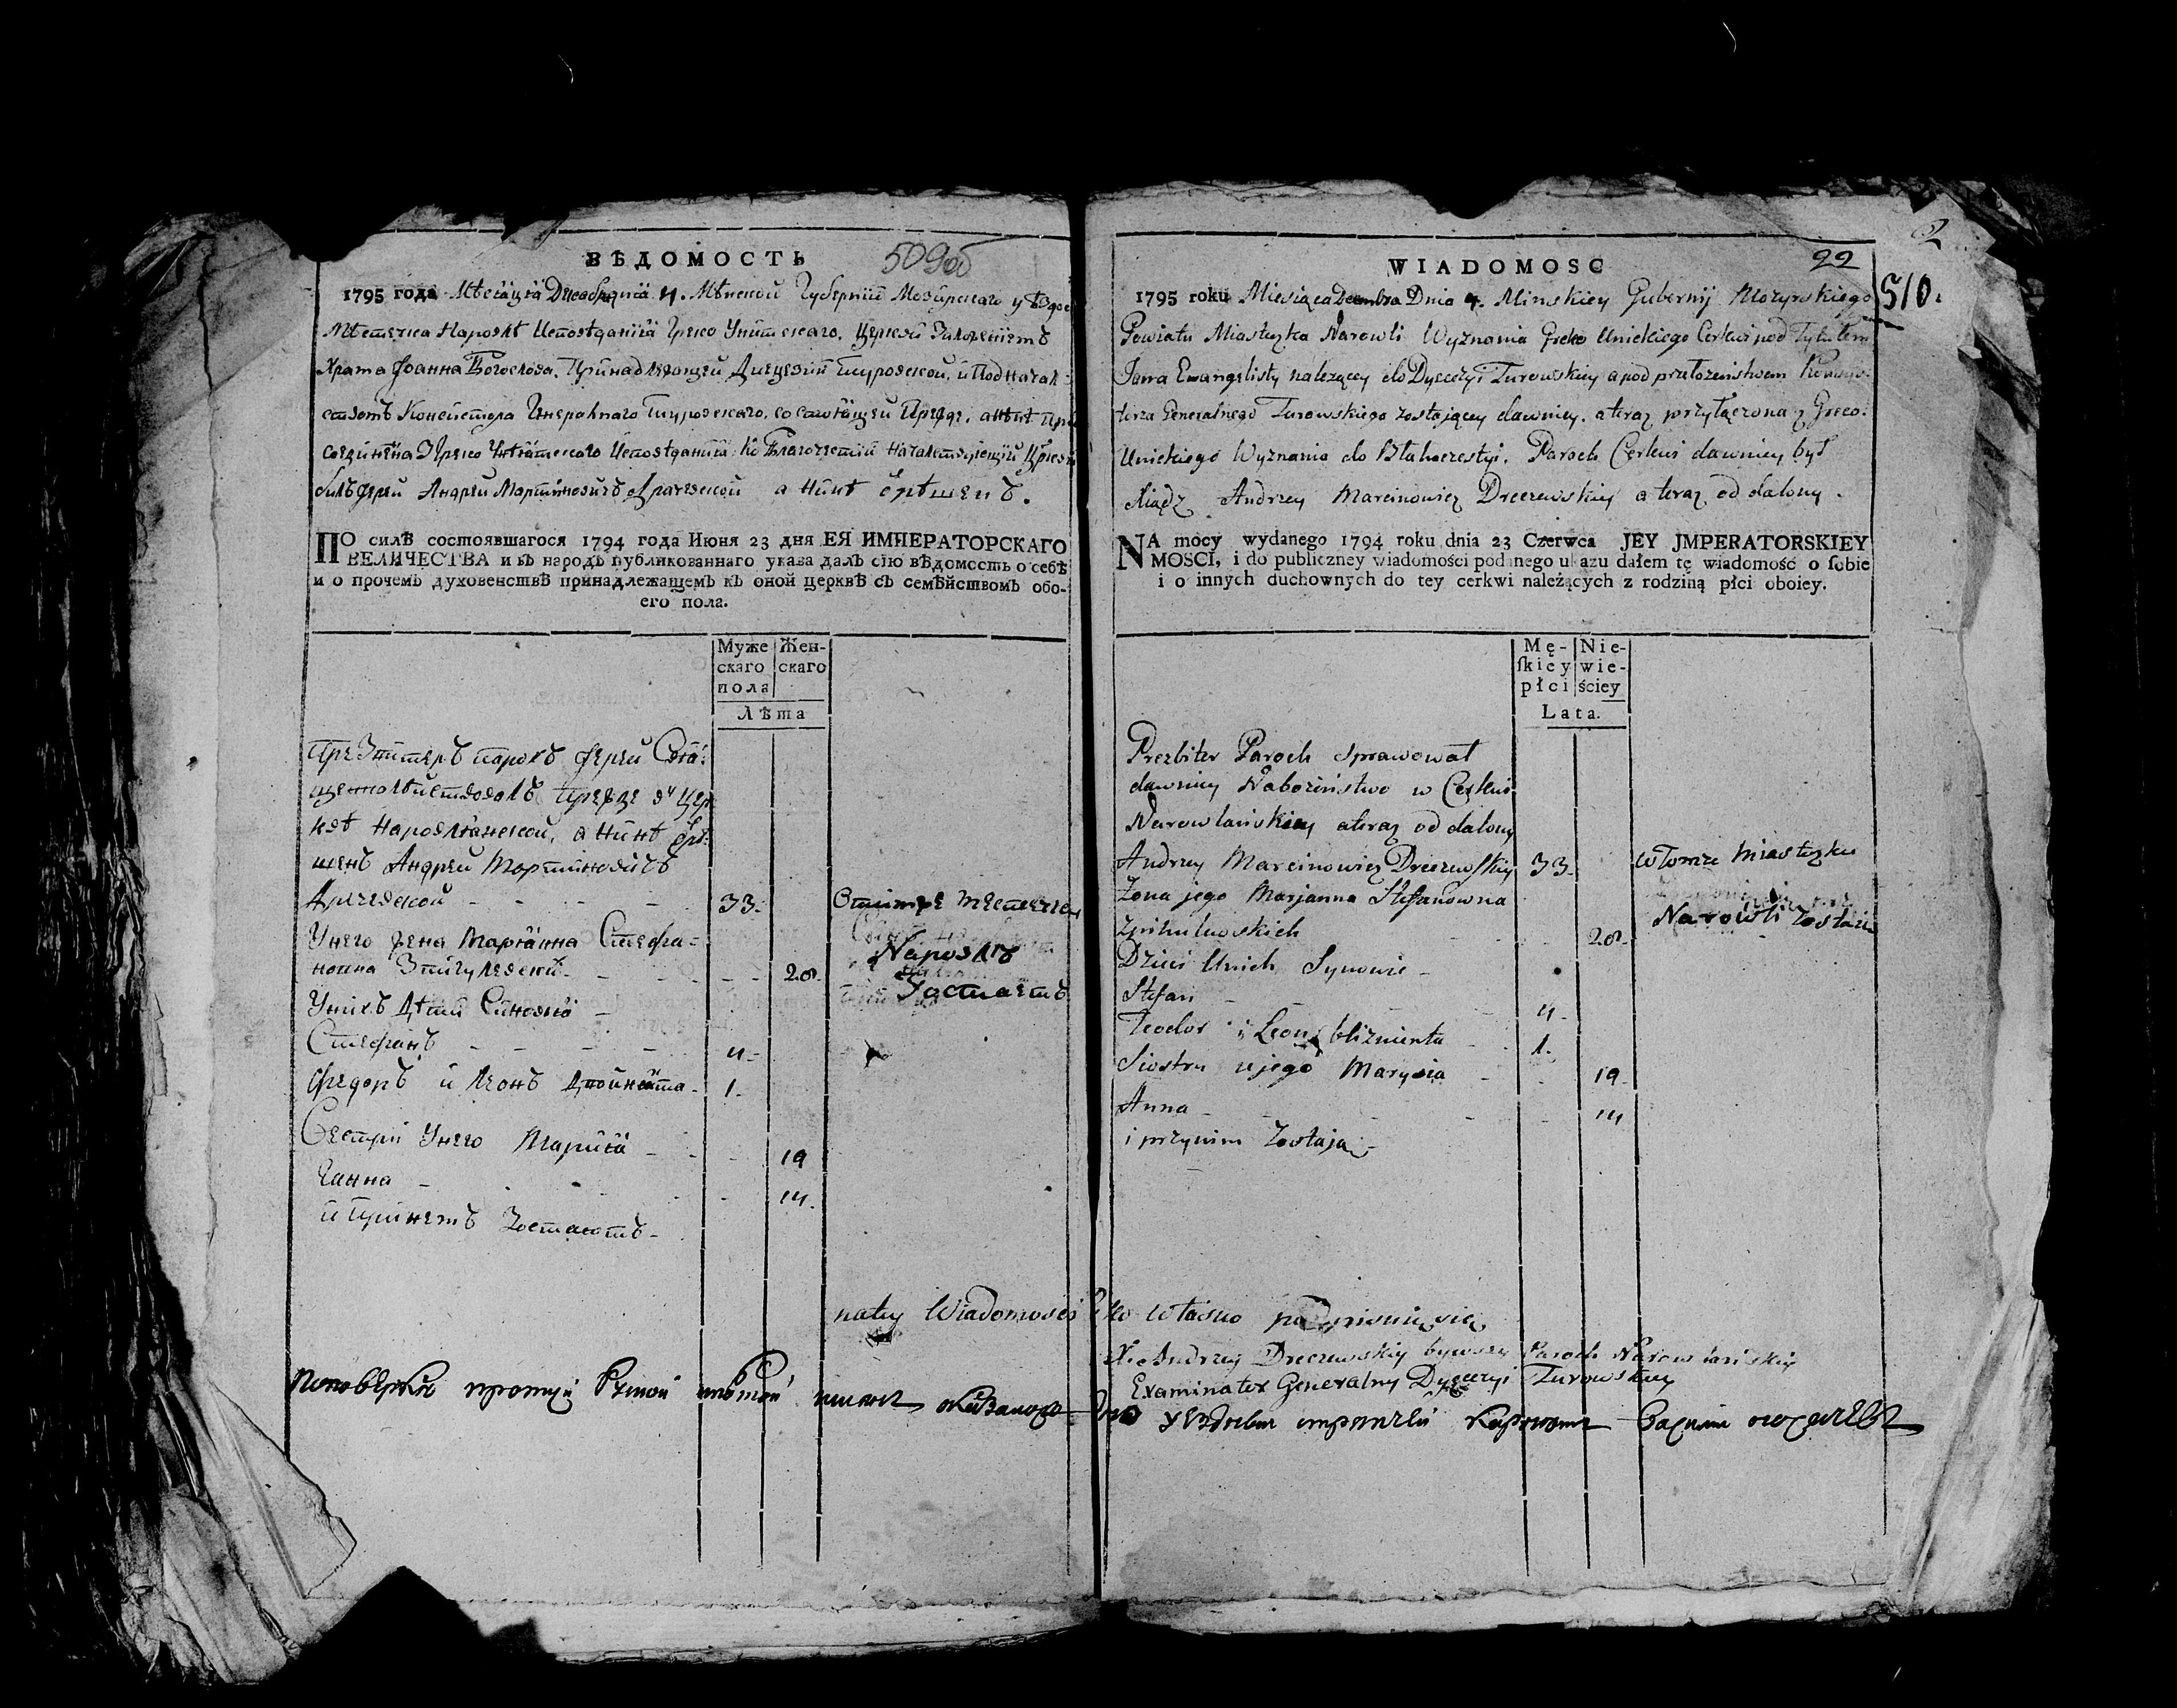 ВѢДОМОСТЬ
509об
1795 года Мѣсяця Декабрия 4. Мѣнской Губерніи Мозырскаго уѣздос
Мѣстечка Наровлѣ Исповѣданія Греко Унитскаго. Церкви
Храма Іоанна Богослова. Принадлежащей Диецезіи Туровской. и Под начал
ством Консистора Генералнаго Туровскаго. состоящей Прежде. а нынѣ при
соединена З Греко Унѣятского Исповѣдания Ко Благочестии Началствующій Цркви
билъ Іерей Андрей Мартиновичъ Драчевской а Нинѣ ѿрѣшенъ.
ПО силѣ состоявшагося 1794 года Июня 23 дня ЕЯ ИМПЕРАТОРСКАГО
ВЕЛИЧЕСТВА и въ народъ публикованнаго указа далъ сію вѣдомость о себѣ
и о прочемъ духовенствѣ принадлежащемъ къ оной церквѣ съ семѣйствомъ обо-
его пола.
Муже Жен-
скаго скаго
пола
Лѣта
Презвитеръ парохъ Іерей Свя-
щеннодѣйствовалъ Прежде в Цер
квѣ Наровлянской, а Нинѣ ѿрѣ-
шенъ Андрей Мартиновичъ
Дречевской - - - 33.
Унего жена Марянна Стефа-
новна - - 28.
Наровлѣ
Зостаетъ
Унихъ Дѣтй Синовя -
Стефанъ - - - - 4.-
Федоръ и Леонъ Двойнята - 1.
Сестри Унего Марися - - - 19
Ганна - - 14.
и Принемъ Зостаютъ -
WIADOMOSC
22
510.
2
1795 roku Miesiąca Decembra Dnia 4. Minskiey Gubernij Mozyrskiego
Powiatu Miasteczka Narowli Wyznania Greko Unickiego Cerkwi pod Tytułem
Jana Ewangelisty nalezącey do Dyecezyi Turowskiey a pod przełożeństwem Konsys-
torza Generalnego Turowskiego zostającey dawniey. a teraz przyłączona z Greco-
Unickiego Wyznania do Błahoczestyi. Paroch Cerkwi dawniey był
Xiądz Andrzey Marcinowicz Dreczewskiy a teraz od dalony.
NA mocy wydanego 1794 roku dnia 23 Czerwca JEY JMPERATORSKIEY
MOSCI, i do publiczney wiadomości podanego ukazu dałem tę wiadomość o sobie
i o innych duchownych do tey cerkwi należących z rodziną płci oboiey.
Mę- Nie-
skiey wie-
płci ściey
Lata.
Prezbiter Paroch sprawował
dawniey Nabożeństwo w Cerkwi
Narowlańskiey a teraz od dalony
Andrzey Marcinowicz Dreczewskiy 33. w Tomze Miasteczku
Zona jego Marjanna Stefanowna
- - 28. Narowli Zostaie
Dzieci Unich Synowie -
Stefan - - - 4.
Teodor i Leon bliznienta - 1.
Siostra ujego Marysia - - 19.
Anna - - - 14
i przynim Zostają -
natey Wiadomości Ręko własno podpisuię się
X. Andrzey Dreczewskiy bywszy Paroch Narowlańskiy
Examinator Generalny Dyecezyi Turowskiey